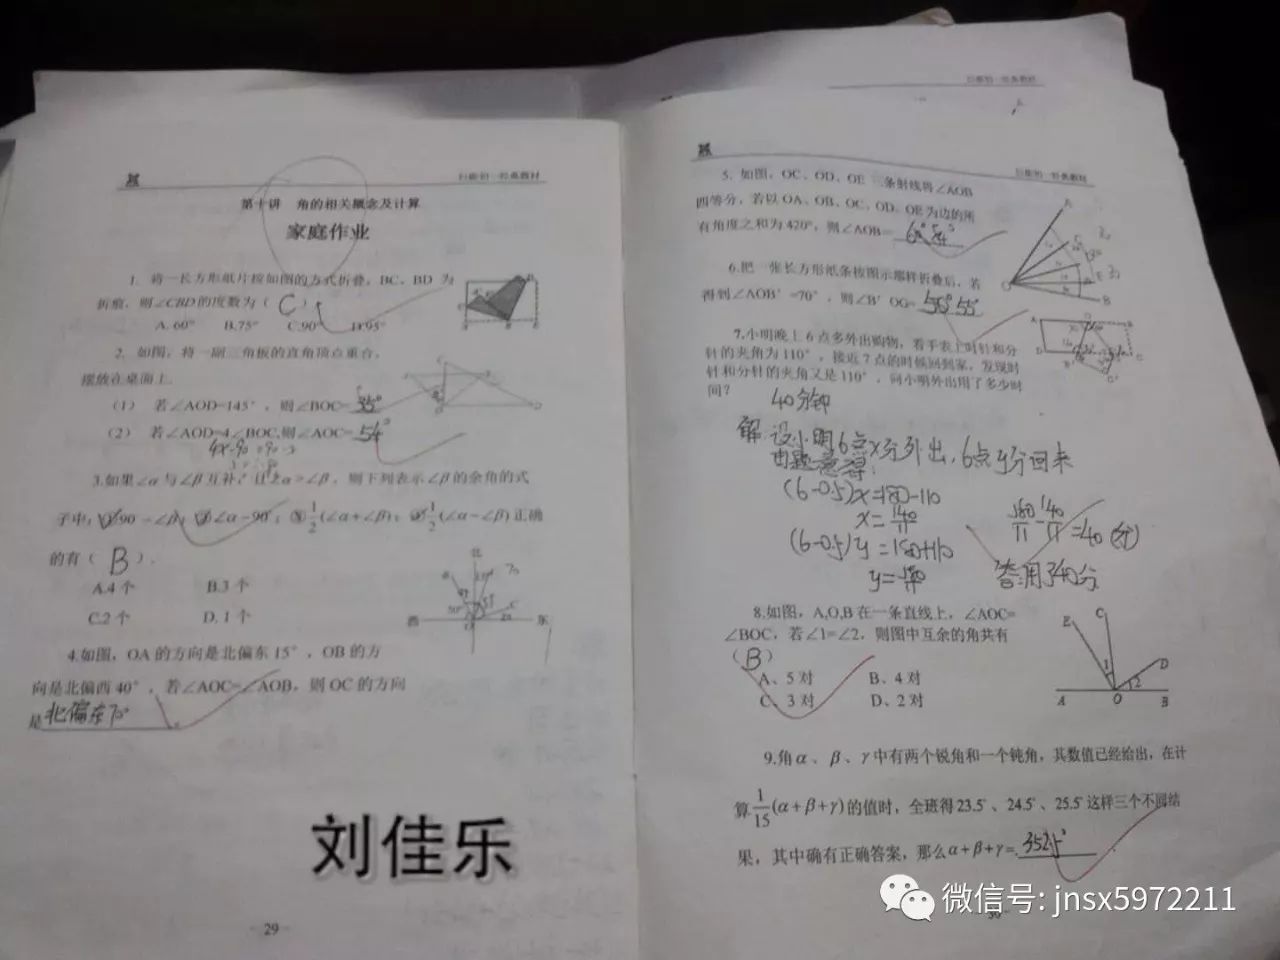 第十讲 角的相关概念及计算
家庭作业
1. 将一长方形纸片按如图的方式折叠，BC、BD 为
折痕，则∠CBD的度数为（ C ）
A. 60° B.75° C.90° D.95°
2. 如图，将一副三角板的直角顶点重合，
摆放在桌面上.
（1） 若∠AOD=145°，则∠BOC= 35°
（2） 若∠AOD=4∠BOC,则∠AOC= 54°
3.如果∠α与∠β互补，且∠α>∠β，则下列表示∠β的余角的式
子中：①90-∠β；②∠α-90°；③1/2(∠α+∠β)；④1/2(∠α-∠β)正确
的有（ B ）.
A.4 个 B.3 个
C.2 个 D. 1 个
北
西 东
4.如图，OA 的方向是北偏东 15°，OB 的方
向是北偏西 40°，若∠AOC=∠AOB，则 OC 的方向
是 北偏东70°
刘佳乐
- 29 -
5. 如图，OC、OD、OE 三条射线将∠AOB
四等分，若以 OA、OB、OC、OD、OE 为边的所
有角度之和为 420°，则∠AOB=
6.把一张长方形纸条按图示那样折叠后，若
得到∠AOB′=70°，则∠B′OG= 55°
7.小明晚上 6 点多外出购物，看手表上时针和分
针的夹角为 110°，接近 7 点的时候回到家，发现时
针和分针的夹角又是 110°，问小明外出用了多少时
间？
40分钟
解：设小明6点x分外出，6点y分回来
由题意得：
(6-0.5)x=180-110
x=140/11
(6-0.5)y=180+110
答：用了40分
8.如图，A,O,B 在一条直线上，∠AOC=
∠BOC，若∠1=∠2，则图中互余的角共有
（ B ）
A、5 对 B、4 对
C、3 对 D、2 对
E C D
1 2
A O B
9.角α、β、γ中有两个锐角和一个钝角，其数值已经给出，在计
算1/15(α+β+γ)的值时，全班得23.5°、24.5°、25.5°这样三个不同结
果，其中确有正确答案，那么α+β+γ= 352.5°
微信号: jnsx5972211